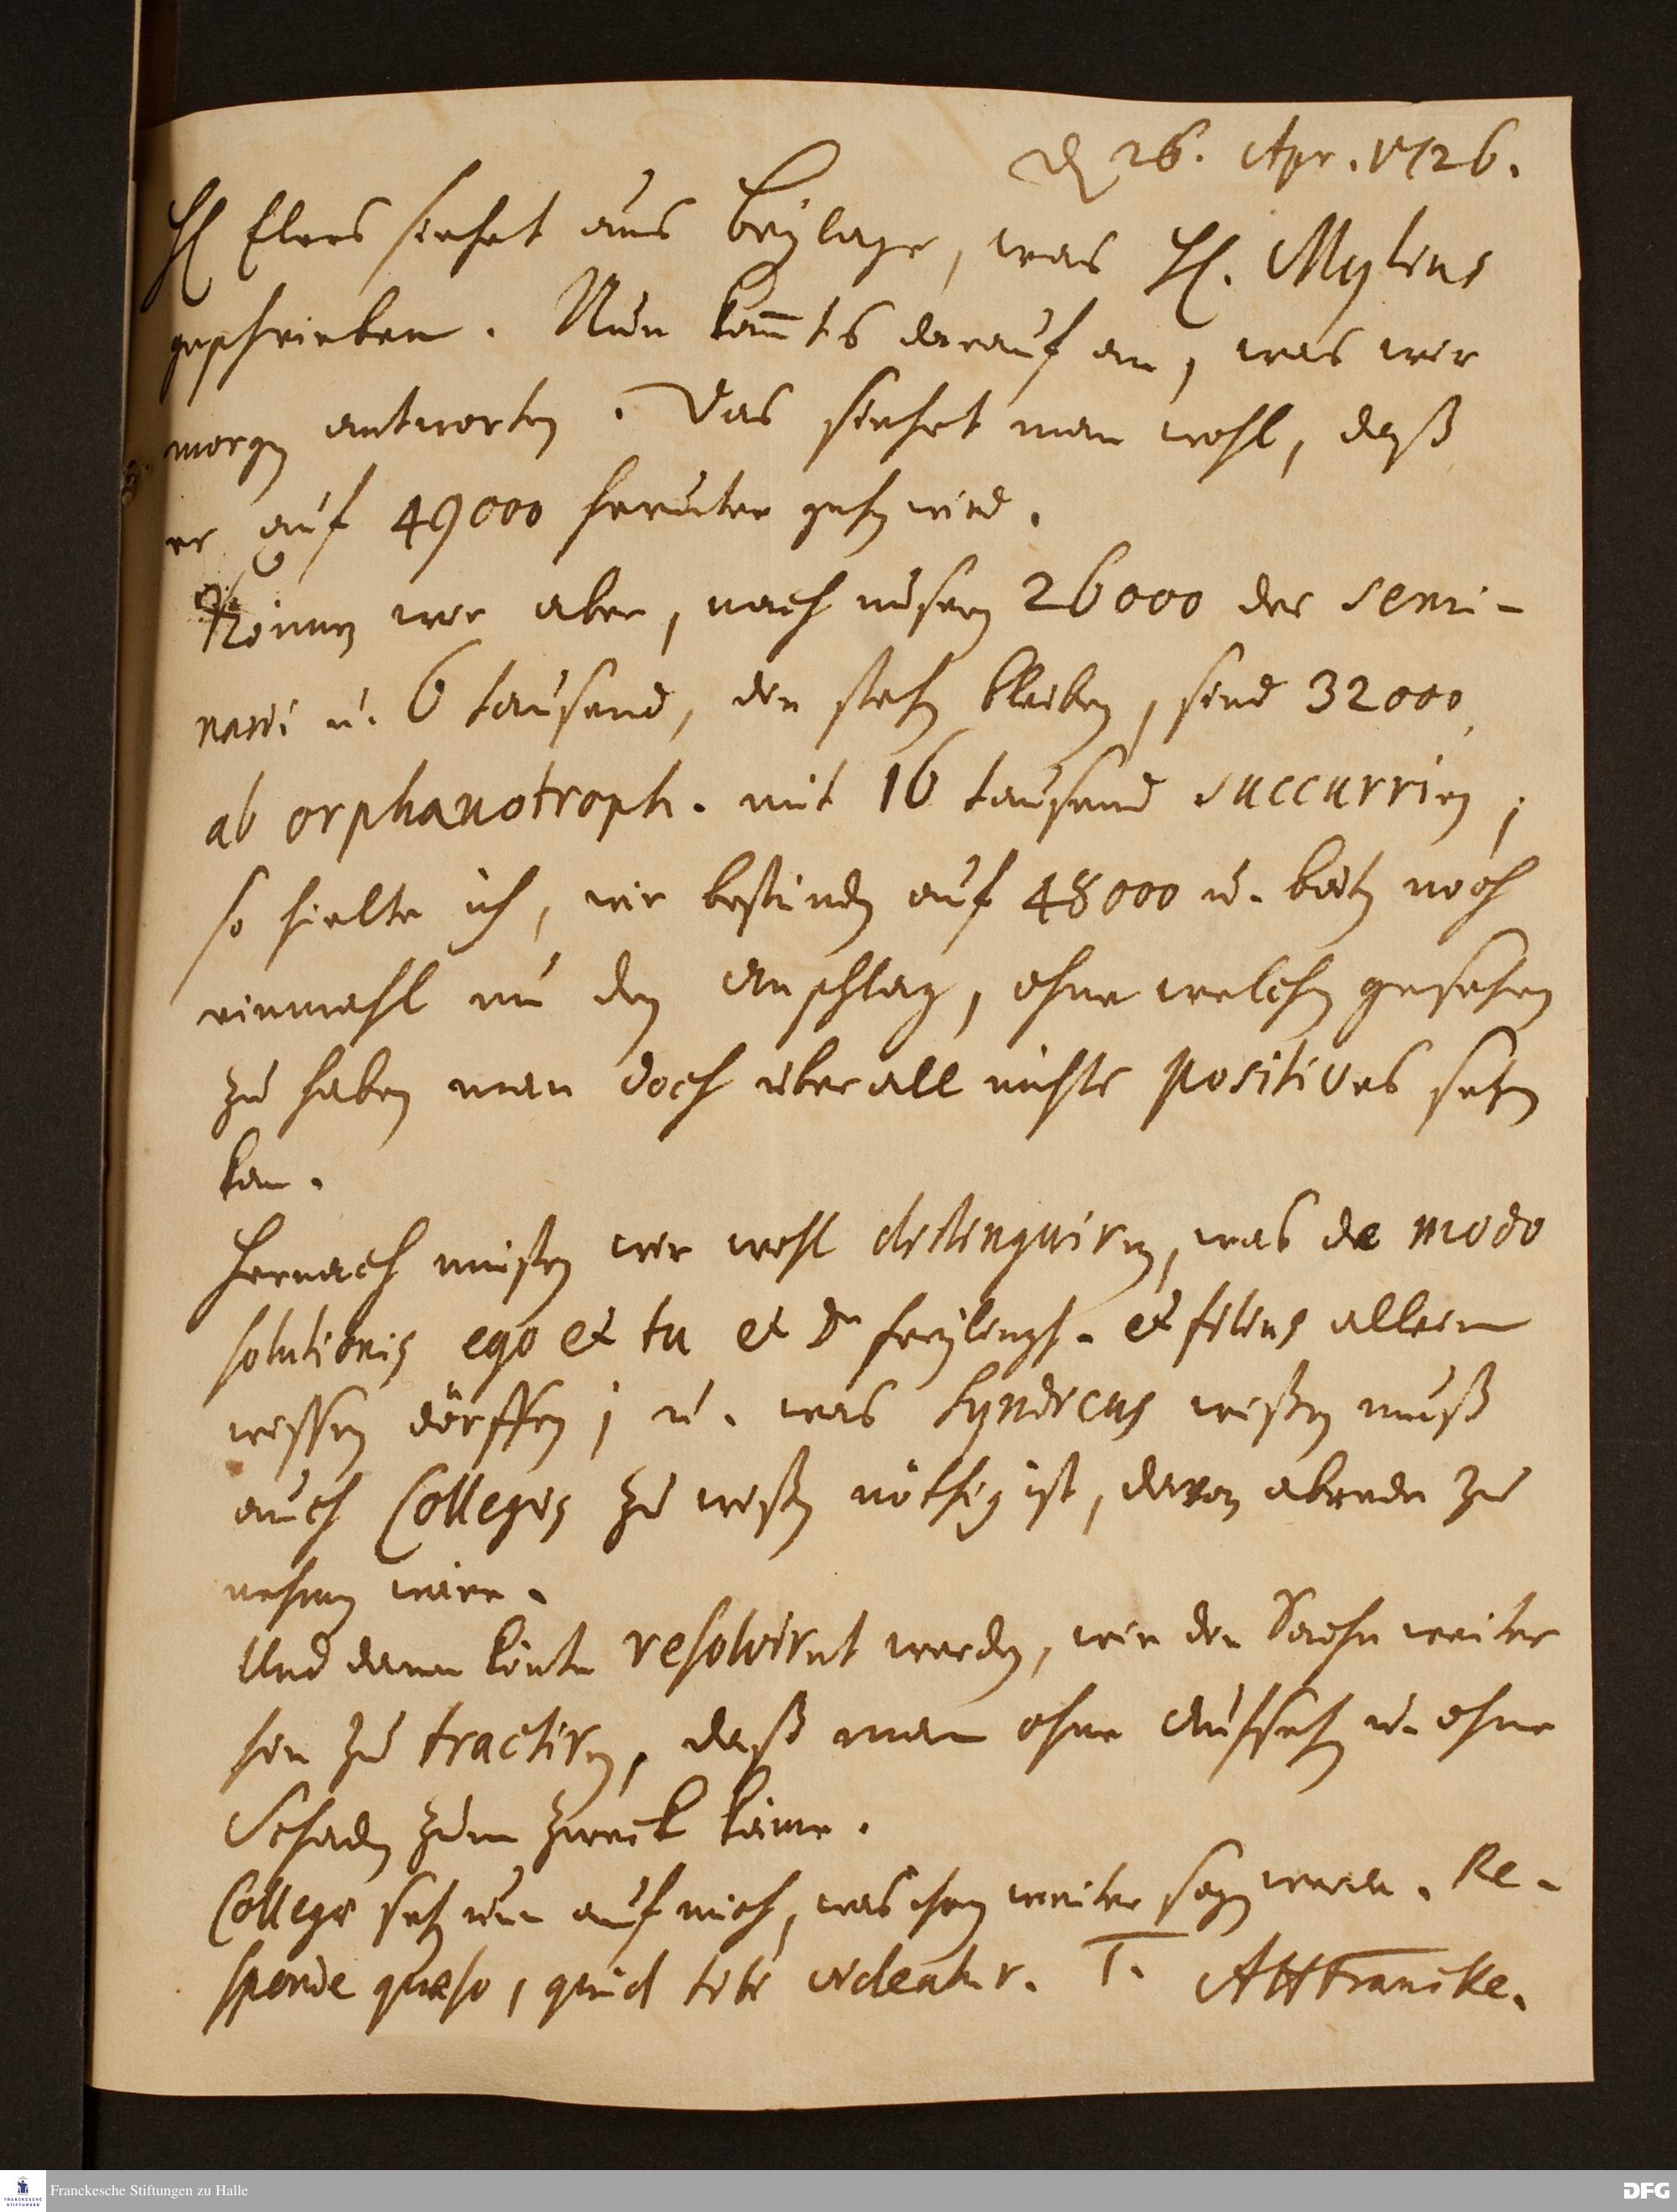 D 26. Apr. 1726.
H Elers siehet aus Beylage, was H. Mylius
geschrieben. Nun komts darauf an, was wir
morgen antworten. Das siehet man wohl, daß
er auf 49000 herunter gehen wird.
Können wir aber, nach unsern 26000 des semi-
narii u. 6 tausend, die stehen bleiben, sind 32000,
ab orphanotroph. mit 16 tausend succurriren,
so hielte ich, wir bestünden auf 48000 u. bäten noch
einmahl um den Anschlag, ohne welchen gesehen
zu haben man doch überall nichts positives setzen
kan.
Hernach müßen wir wohl distinguiren, was de modo
solutionis ego et tu et Dn Freylingh. et filius allein
wissen dörffen; u. was Syndicus wißen muß
auch Collegis zu wißen nöthig ist, davon abrede zu
nehmen wäre.
Und dann könte resolviret werden, wie die Sache weiter
hin zu tractiren, daß man ohne Aufsehen u. ohne
Schaden zum Zweck käme.
Collegae sehen nun auf mich, was ihnen weiter sagen werde. Re-
sponde quaeso, quid tibi videatur. T. AHFrancke.
Franckesche Stiftungen zu Halle
FRANCKESCHE STIFTUNGEN
DFG